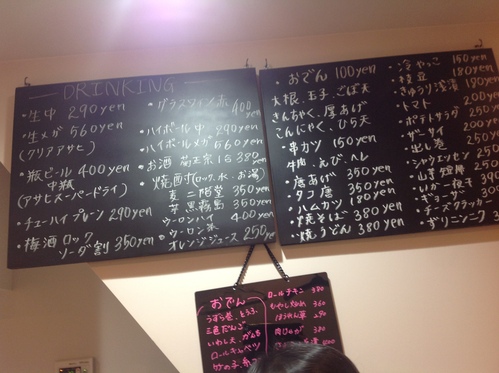 DRINKING
・生中 290yen
・生メガ 560yen
(クリアアサヒ)
・瓶ビール 400yen
中瓶
(アサヒスーパードライ)
・チューハイプレーン 290yen
・梅酒 ロック
ソーダ割 350yen
・グラスワイン 赤
400yen
・ハイボール 中 290yen
・ハイボールメガ 560yen
・お酒 菊正宗 1合 380yen
・焼酎(ロック、水、お湯)
麦 二階堂 350yen
芋 黒霧島 350yen
・ウーロンハイ 400yen
・ウーロン茶
オレンジジュース 250yen
・おでん 100yen
大根、玉子、ごぼ天
きんちゃく、厚あげ
こんにゃく、ひら天
・串カツ 150yen
牛肉、えび、ヘレ
・唐あげ 350yen
・タコ唐 350yen
・ハムカツ 180yen
・焼そば 380yen
・焼うどん 380yen
・冷やっこ 150yen
・枝豆 180yen
・きゅうり浅漬 180yen
・トマト 200yen
・ポテトサラダ
・ザーサイ
・出し巻
・シャウエッセン
・山芋短冊
・いか一夜干
・ギョーザ
・チーズクラッカー
おでん
うずら巻、とうふ
三色だんご
ロールキャベツ
ロールチキン 380
もやし炒め 360
ほうれん草 290
肉じゃが 380